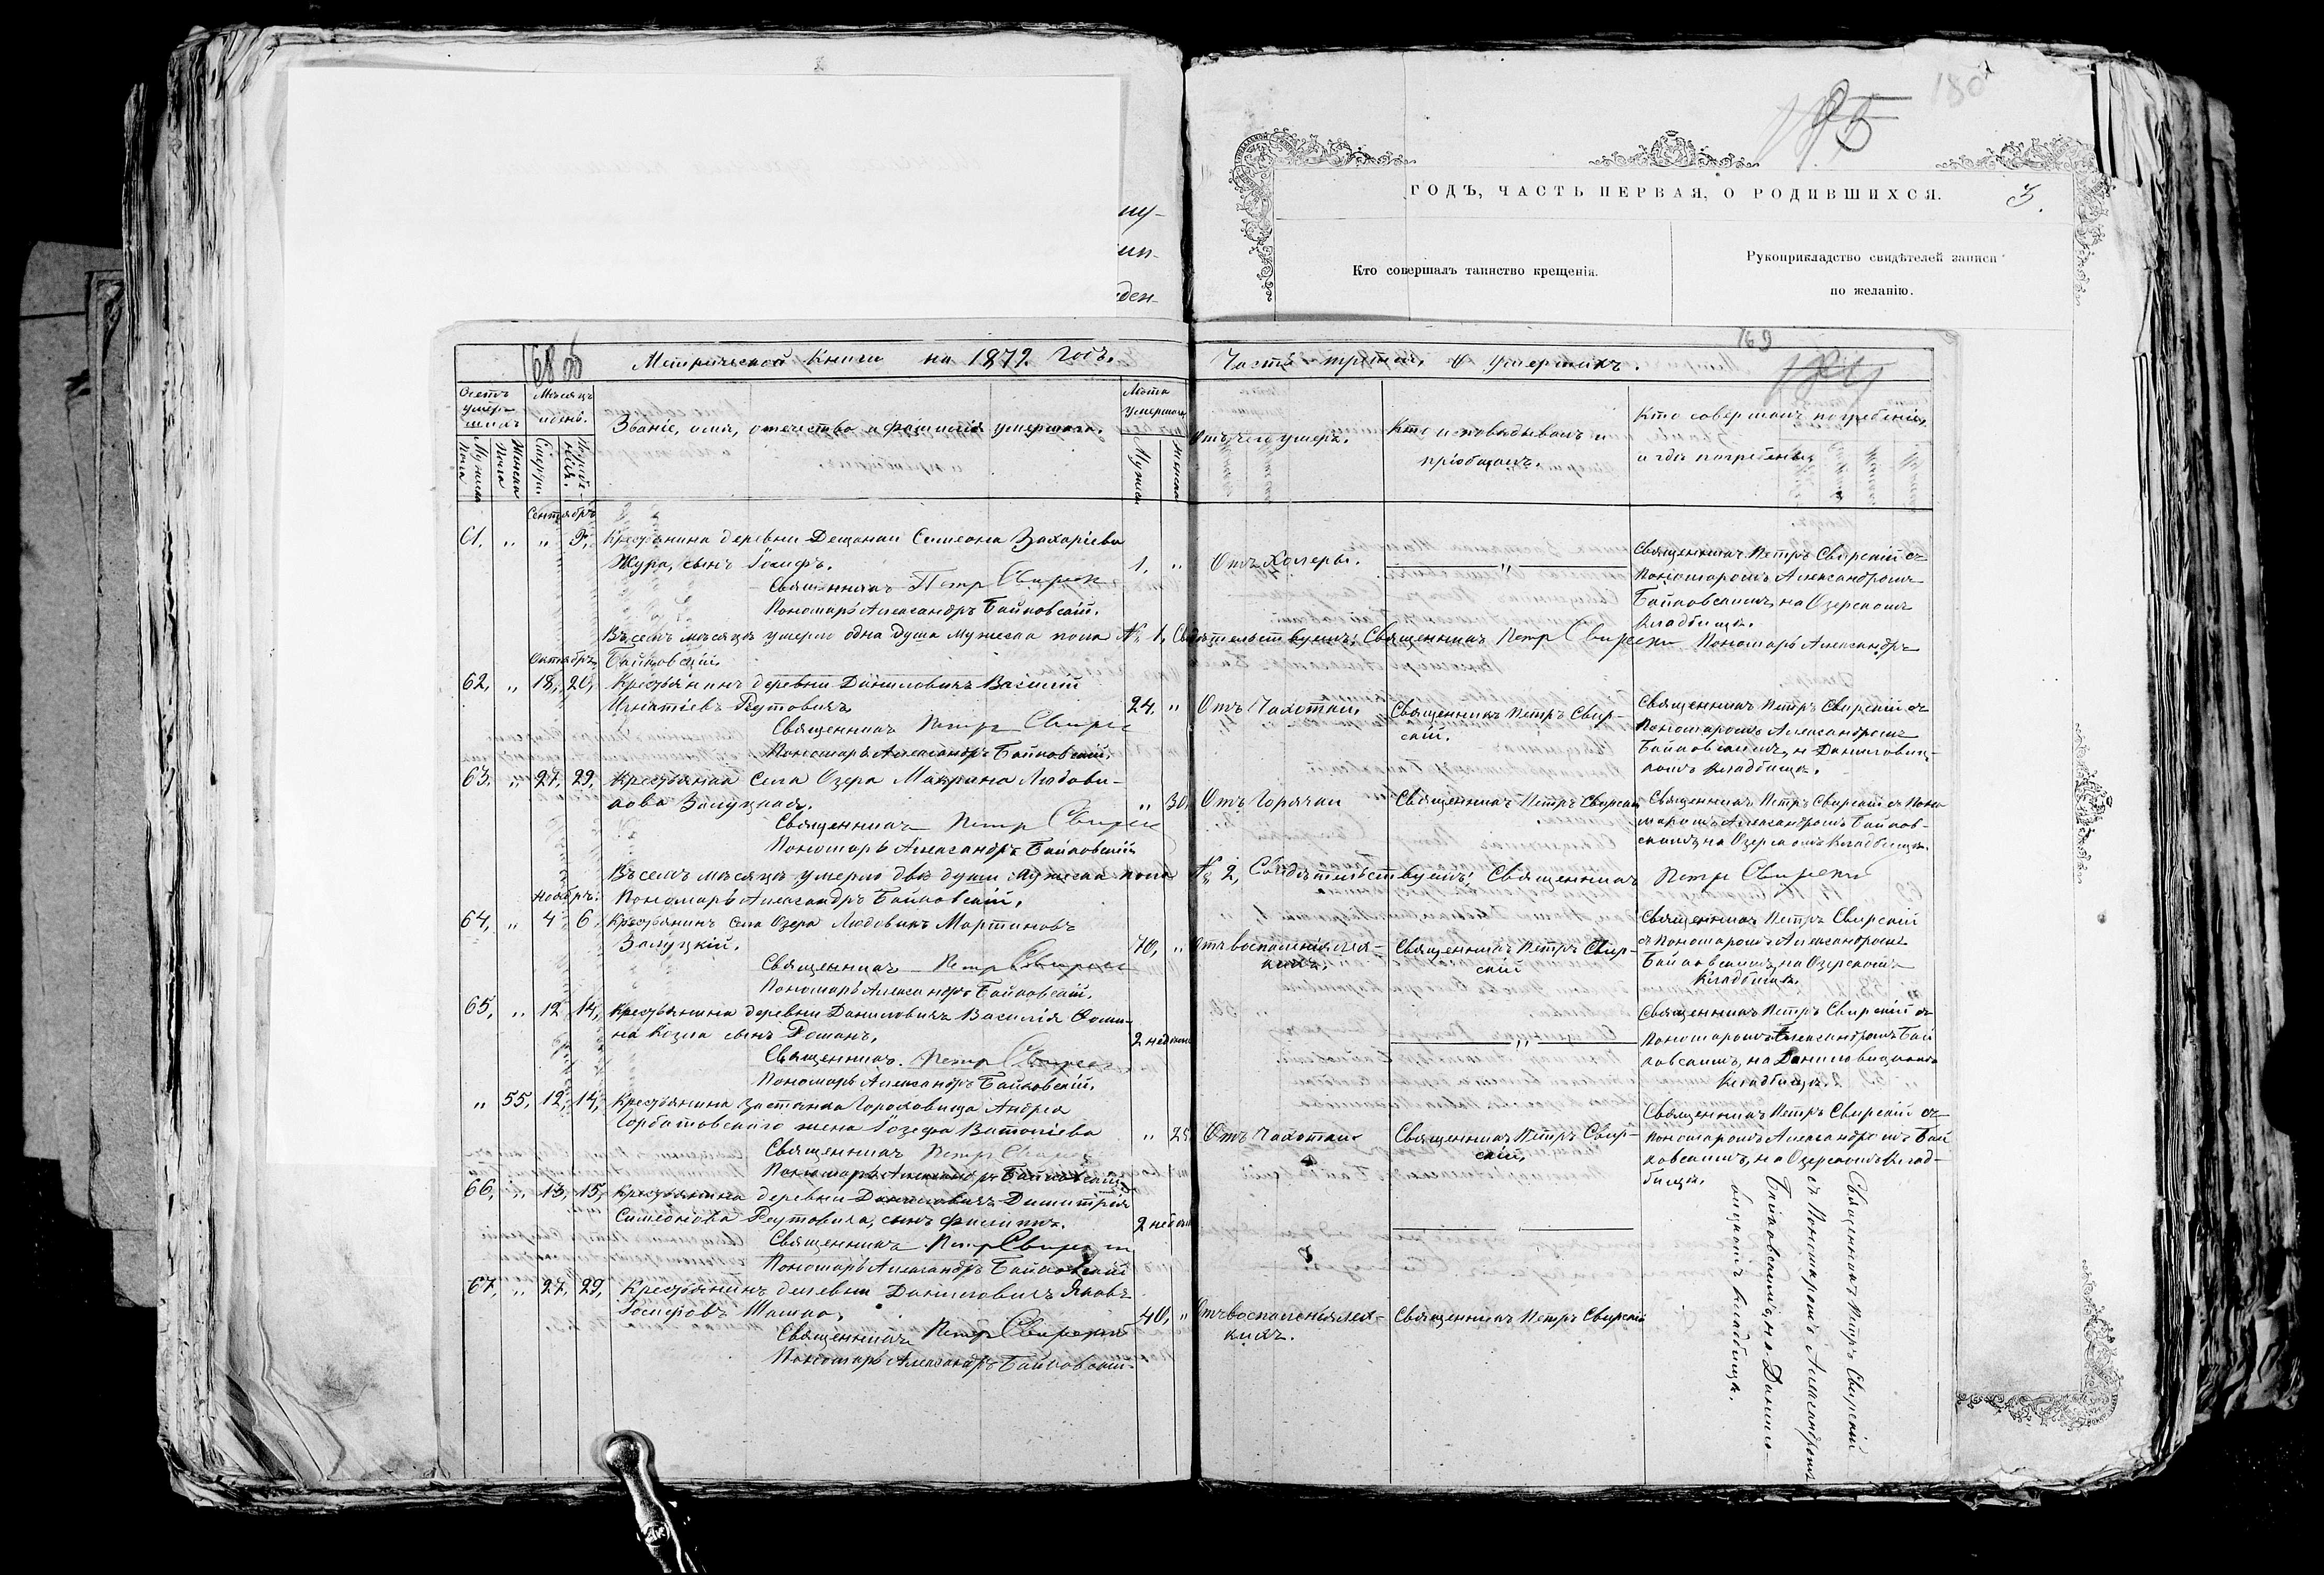 185
180
ГОДЪ, ЧАСТЬ ПЕРВАЯ, О РОДИВШИХСЯ.
3.
Кто совершалъ таинство крещенія.
Рукоприкладство свидѣтелей записи
по желанію.
169
68 об
184
Метрической Книги на 1872 годъ.
Часть третья, о умершихъ.
Счетъ умер-шихъ
Мѣсяцъ и день.
Званіе, имя, отечество и фамилія умершаго.
Лѣта умершаго
Отъ чего умеръ.
Кто исповѣдывалъ и
пріобщалъ.
Кто совершалъ погребеніе,
и гдѣ погребены
Мужеска Пола
Женска Пола
Смерти.
Погребе-нія.
Мужеска
Женска
Сентябръ
61. " " 9. Крестьянина деревни Симеона Захаріева
Жура, сынъ Іосифъ. 1. " Отъ Холеры. "
Священникъ Петръ Свирскій
Пономарь Александръ Байковскій.
Священникъ Петръ Свирскій съ
Пономаромъ Александромъ
Байковскимъ, на Озерскомъ
Кладбищѣ.
Въ семъ мѣсяцѣ умерло одна душа мужеска пола № 1, Свидѣтельствуемъ: Священникъ Петръ Свирскій Пономарь Александръ
Байковскій.
Октябрь
62, " 18, 20, Крестьянинъ деревни Даниловичъ Василій
Игнатіевъ Реутовичъ 24, " Отъ Чахотки, Священникъ Петръ Свир-
скій.
Священникъ Петръ Свирскій
Пономарь Александръ Байковскій.
Священникъ Петръ Свирскій съ
Пономаромъ Александромъ
Байковскимъ, н Даниловиц-
комъ Кладбищѣ.
63, " 27, 29, Крестьянка Села Озера Макрина Людови-
кова Залуцкая. " 30, Отъ Горячки Священникъ Петръ Свирскій
Священникъ Петръ Свирскій
Пономарь Александръ Байковскій
Священникъ Петръ Свирскій съ Поно
маромъ Александромъ Байков-
скимъ, на Озерскомъ Кладбищѣ.
Въ семъ мѣсяцѣ умерло двѣ души мужеска пола № 2, Свидѣтельствуемъ: Священникъ Петръ Свирскій
Пономарь Александръ Байковскій,
Ноябрь.
64, " 4 6, Крестьянинъ Села Озера Людвикъ Мартиновъ
Залуцкій. 70, " Отъ воспаленія лег-
кихъ. Священникъ Петръ Свир-
скій
Священникъ Петръ Свирскій
Пономарь Александръ Байковскій.
Священникъ Петръ Свирскій
съ Пономаромъ Александромъ
Байковскимъ, на Озерскомъ
Кладбищѣ.
65, " 12 14, Крестьянина деревни Даниловичъ Василія Ѳоми-
на Козла сынъ Романъ, 2 недели "
Священникъ Петръ Свирскій
Пономарь Александръ Байковскій,
Священникъ Петръ Свирскій съ
Пономаромъ Александромъ Бай
ковскимъ, на Даниловицкомъ
Кладбищѣ.
" 55, 12, 14, Крестьянина застѣнка Гороховища Андрея
Горбатовскаго жена Іозефа Витоліева " 25 Отъ Чахотки Священникъ Петръ Свир-
скій,
Священникъ Петръ Свирскій
Пономарь Александръ Байковскій
Священникъ Петръ Свирскій съ
Пономаромъ Александромъ Бай
ковскимъ, на Озерскомъ Клад-
бищѣ.
66, " 13, 15, Крестьянина деревни Даниловичъ Димитрія
Симеонова Реутовича, сынъ Филипъ. 2 недели
Священникъ Петръ Свирскій
Пономарь Александръ Байковскій
67, " 27, 29, Крестьянинъ деревни Даниловичъ Яковъ
Іосифовъ 40, " Отъ воспаленья лег-
кихъ. Священникъ Петръ Свирскій
Священникъ Петръ Свирскій
Пономарь Александръ Байковскій.
Священникъ Петръ Свирскій
съ Пономаромъ Александромъ
Байковскимъ, на Данило-
вицкомъ Кладбищѣ.